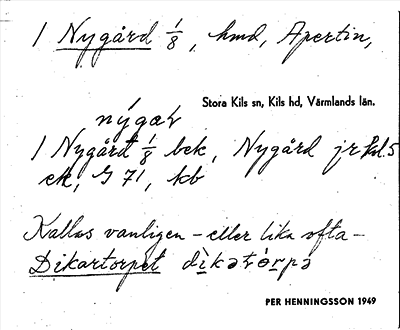 1 Nygård 1/8, hmd, Apertin,
Stora Kils sn, Kils hd, Värmlands län.
nýgær
1 Nygård 1/8 bek, Nygård jr bl. 5
ek, G 71, kb
Kallas vanligen – eller lika ofta –
Dikartorpet dìkətórpə
PER HENNINGSSON 1949